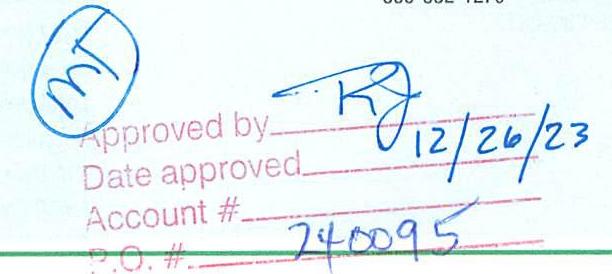 Approved by RJ
Date approved 12/26/23
Account #
P.O. # 240095